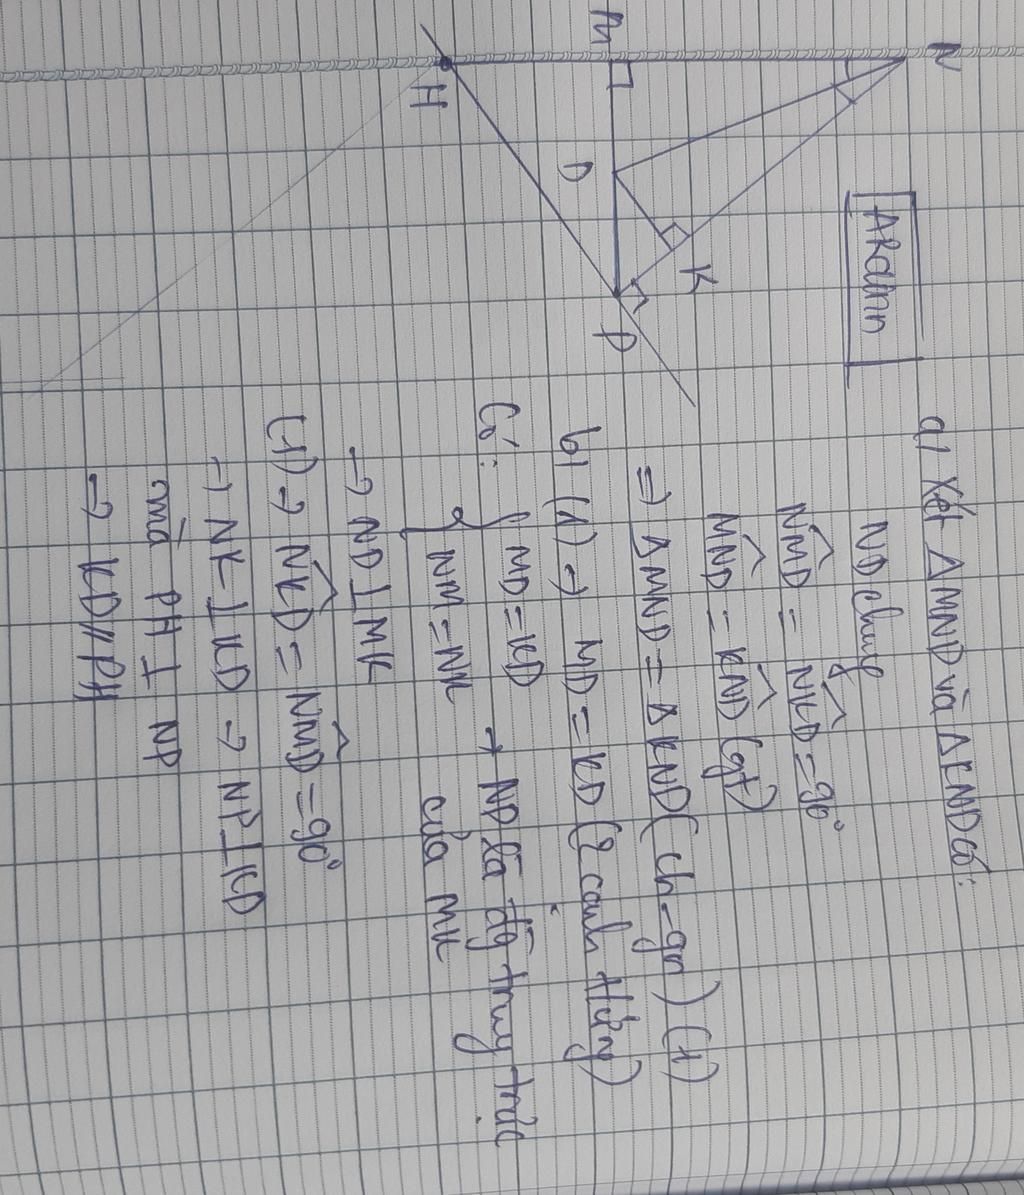 N
M
H
D
K
P
ARdmn
a) Xét ΔMND và ΔKND có:
ND chung
N̂MD = N̂KD = 90°
M̂ND = K̂ND (gt)
=> ΔMND = ΔKND (ch-gn) (1)
b) (1) => MD = KD (2 cạnh tương ứng)
Có: { MD = KD → ND là đg trung trực
{ NM = NK của MK
→ ND ⊥ MK
(1) → N̂KD = N̂MD = 90°
→ NK ⊥ KD → NP ⊥ KD
mà PH ⊥ NP
→ KD // PH